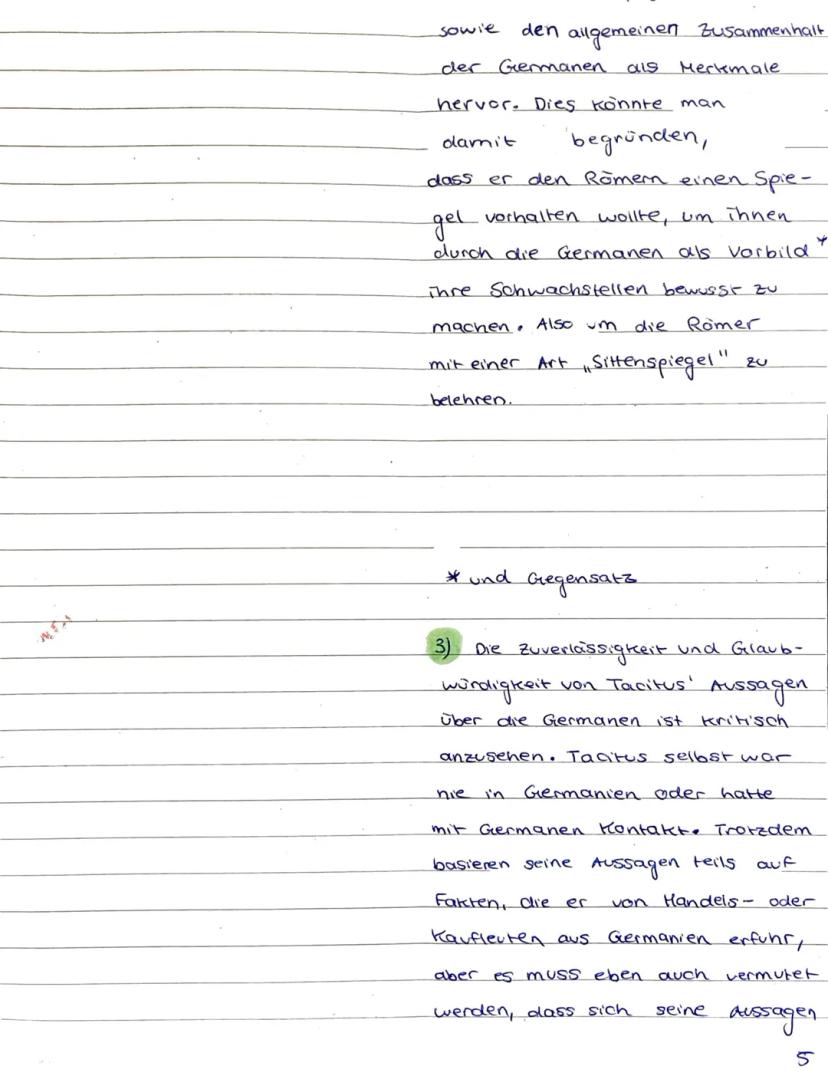 sowie den allgemeinen Zusammenhalt
der Germanen als Merkmale
hervor. Dies könnte man
damit begründen,
dass er den Römern einen Spie-
gel vorhalten wollte, um ihnen
durch die Germanen als Vorbild *
ihre Schwachstellen bewusst zu
machen. Also um die Römer
mit einer Art „Sittenspiegel" zu
belehren.
* und Gegensatz
3) Die Zuverlässigkeit und Glaub-
würdigkeit von Tacitus' Aussagen
über die Germanen ist kritisch
anzusehen. Tacitus selbst war
nie in Germanien oder hatte
mit Germanen Kontakt. Trotzdem
basieren seine Aussagen teils auf
Fakten, die er von Handels- oder
Kaufleuten aus Germanien erfuhr,
aber es muss eben auch vermutet
werden, dass sich seine Aussagen
5